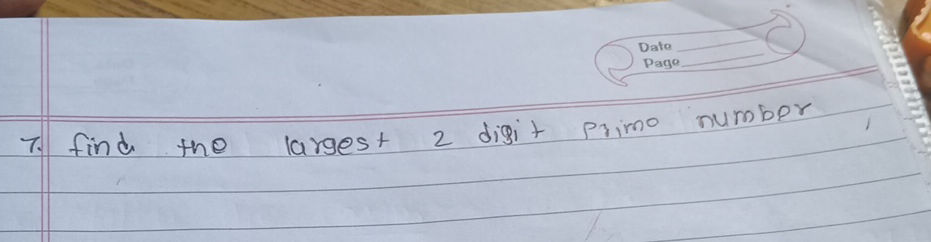 Date
Page
7. find the largest 2 digit Prime number